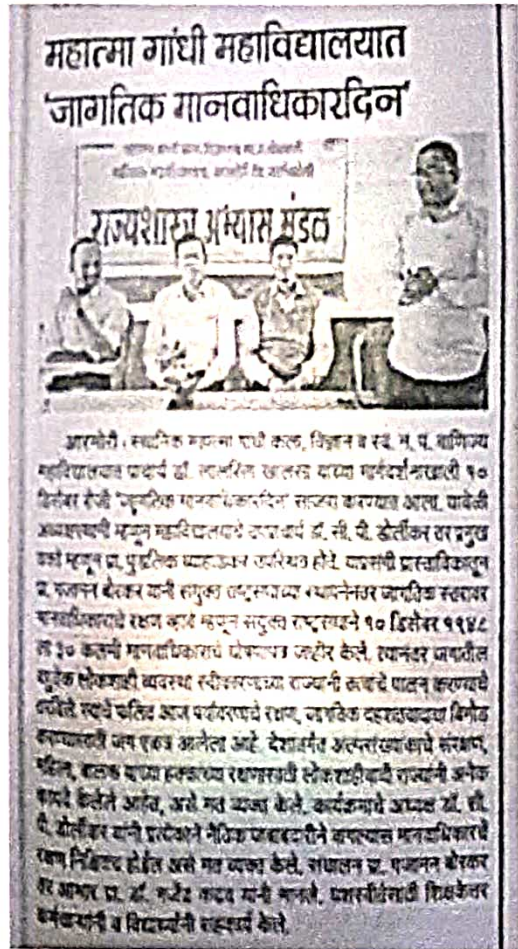 महात्मा गांधी महाविद्यालयात
'जागतिक मानवाधिकारदिन'
राज्यशास्त्र अभ्यास मंडल
आरमोरी : स्थानिक महात्मा गांधी कला, विज्ञान व स्व. न. पं. वाणिज्य
महाविद्यालयात प्राचार्य डॉ. लालसिंग खालसा यांच्या मार्गदर्शनाखाली १०
डिसेंबर रोजी 'जागतिक मानवाधिकारदिन' साजरा करण्यात आला. यावेळी
अध्यक्षस्थानी म्हणून महाविद्यालयाचे उपप्राचार्य डॉ. सी. पी. डोर्लीकर तर प्रमुख
वक्ते म्हणून प्रा. पुंडलिक उपस्थित होते. याप्रसंगी प्रास्ताविकातून
प्रा. गजानन बोरकर यांनी संयुक्त राष्ट्रसंघाच्या स्थापनेनंतर जागतिक स्तरावर
मानवाधिकाराचे रक्षण व्हावे म्हणून संयुक्त राष्ट्रसंघाने १० डिसेंबर १९४८
ला ३० कलमी मानवाधिकाराचे घोषणापत्र जाहीर केले. त्यानंतर जगातील
लोकशाही व्यवस्था स्वीकारणाच्या राज्यांनी त्याचे पालन करण्याचे
आज पर्यावरणाचे रक्षण, जागतिक
करण्यासाठी जग एकत्र आलेला आहे. देशांतर्गत अल्पसंख्याकाचे संरक्षण,
महिला, बालक यांच्या हक्काच्या रक्षणासाठी लोकशाहीवादी राज्यांनी अनेक
कायदे केलेले आहेत, असे मत व्यक्त केले. कार्यक्रमाचे अध्यक्ष डॉ. सी.
पी. डोर्लीकर यांनी प्रत्येकाने नैतिक जबाबदारीने वागल्यास मानवाधिकारचे
रक्षण निश्चितच होईल असे मत व्यक्त केले. संचालन प्रा. गजानन बोरकर
तर आभार प्रा. डॉ. गजेंद्र कढव यांनी मानले. यशस्वीतेसाठी शिक्षकेत्तर
कर्मचाऱ्यांनी व विद्यार्थ्यांनी सहकार्य केले.